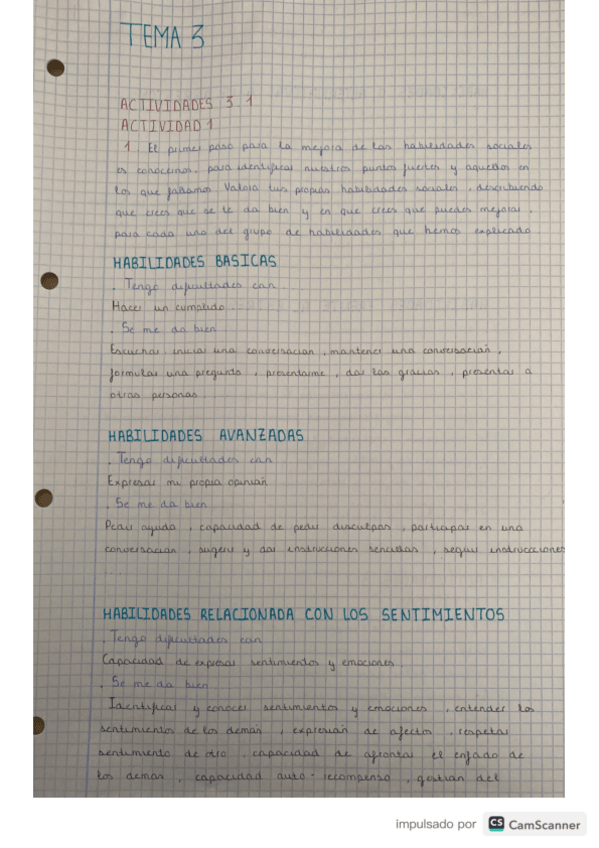 TEMA 3
ACTIVIDADES 3.1
ACTIVIDAD 1
1 El primer paso para la mejora de las habilidades sociales
es conocernos, para identificar nuestros puntos fuertes y aquellos en
los que fallamos. Valora tus propias habilidades sociales, describiendo
que crees que se te da bien y en que crees que puedes mejorar,
para cada uno del grupo de habilidades que hemos explicado
HABILIDADES BASICAS
. Tengo dificultades con
Hacer un cumplido
. Se me da bien
Escuchar, iniciar una conversacion, mantener una conversación,
formular una pregunta, presentarme, dar las gracias, presentar a
otras personas
HABILIDADES AVANZADAS
. Tengo dificultades con
Expresar mi propia opinión
. Se me da bien
Pedir ayuda, capacidad de pedir disculpas, participar en una
conversacion, sugerir y dar instrucciones sencillas, seguir instrucciones
HABILIDADES RELACIONADA CON LOS SENTIMIENTOS
. Tengo dificultades con
Capacidad de expresar sentimientos y emociones
. Se me da bien
Identificar y conocer sentimientos y emociones, entender los
sentimientos de los demás, expresión de afecto, respetar
sentimiento de otro, capacidad de afrontar el enfado de
los demas, capacidad auto-recompensa, gestion del
impulsado por CS CamScanner